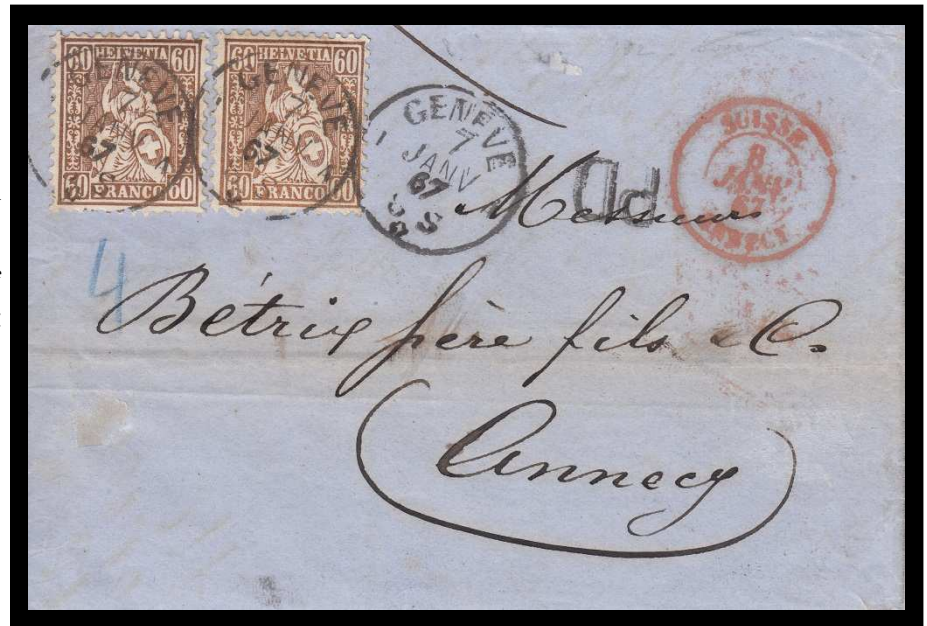 60 HELVETIA 60
60 FRANCO 60
60 HELVETIA 60
60 FRANCO 60
GENÈVE
7
JANV
67
GENÈVE
7
JANV
67
GENÈVE
7
JANV
67
S
PD
SUISSE
8
JANV
67
ANNECY
4
Messieurs
Bétrix père fils & C.
Annecy